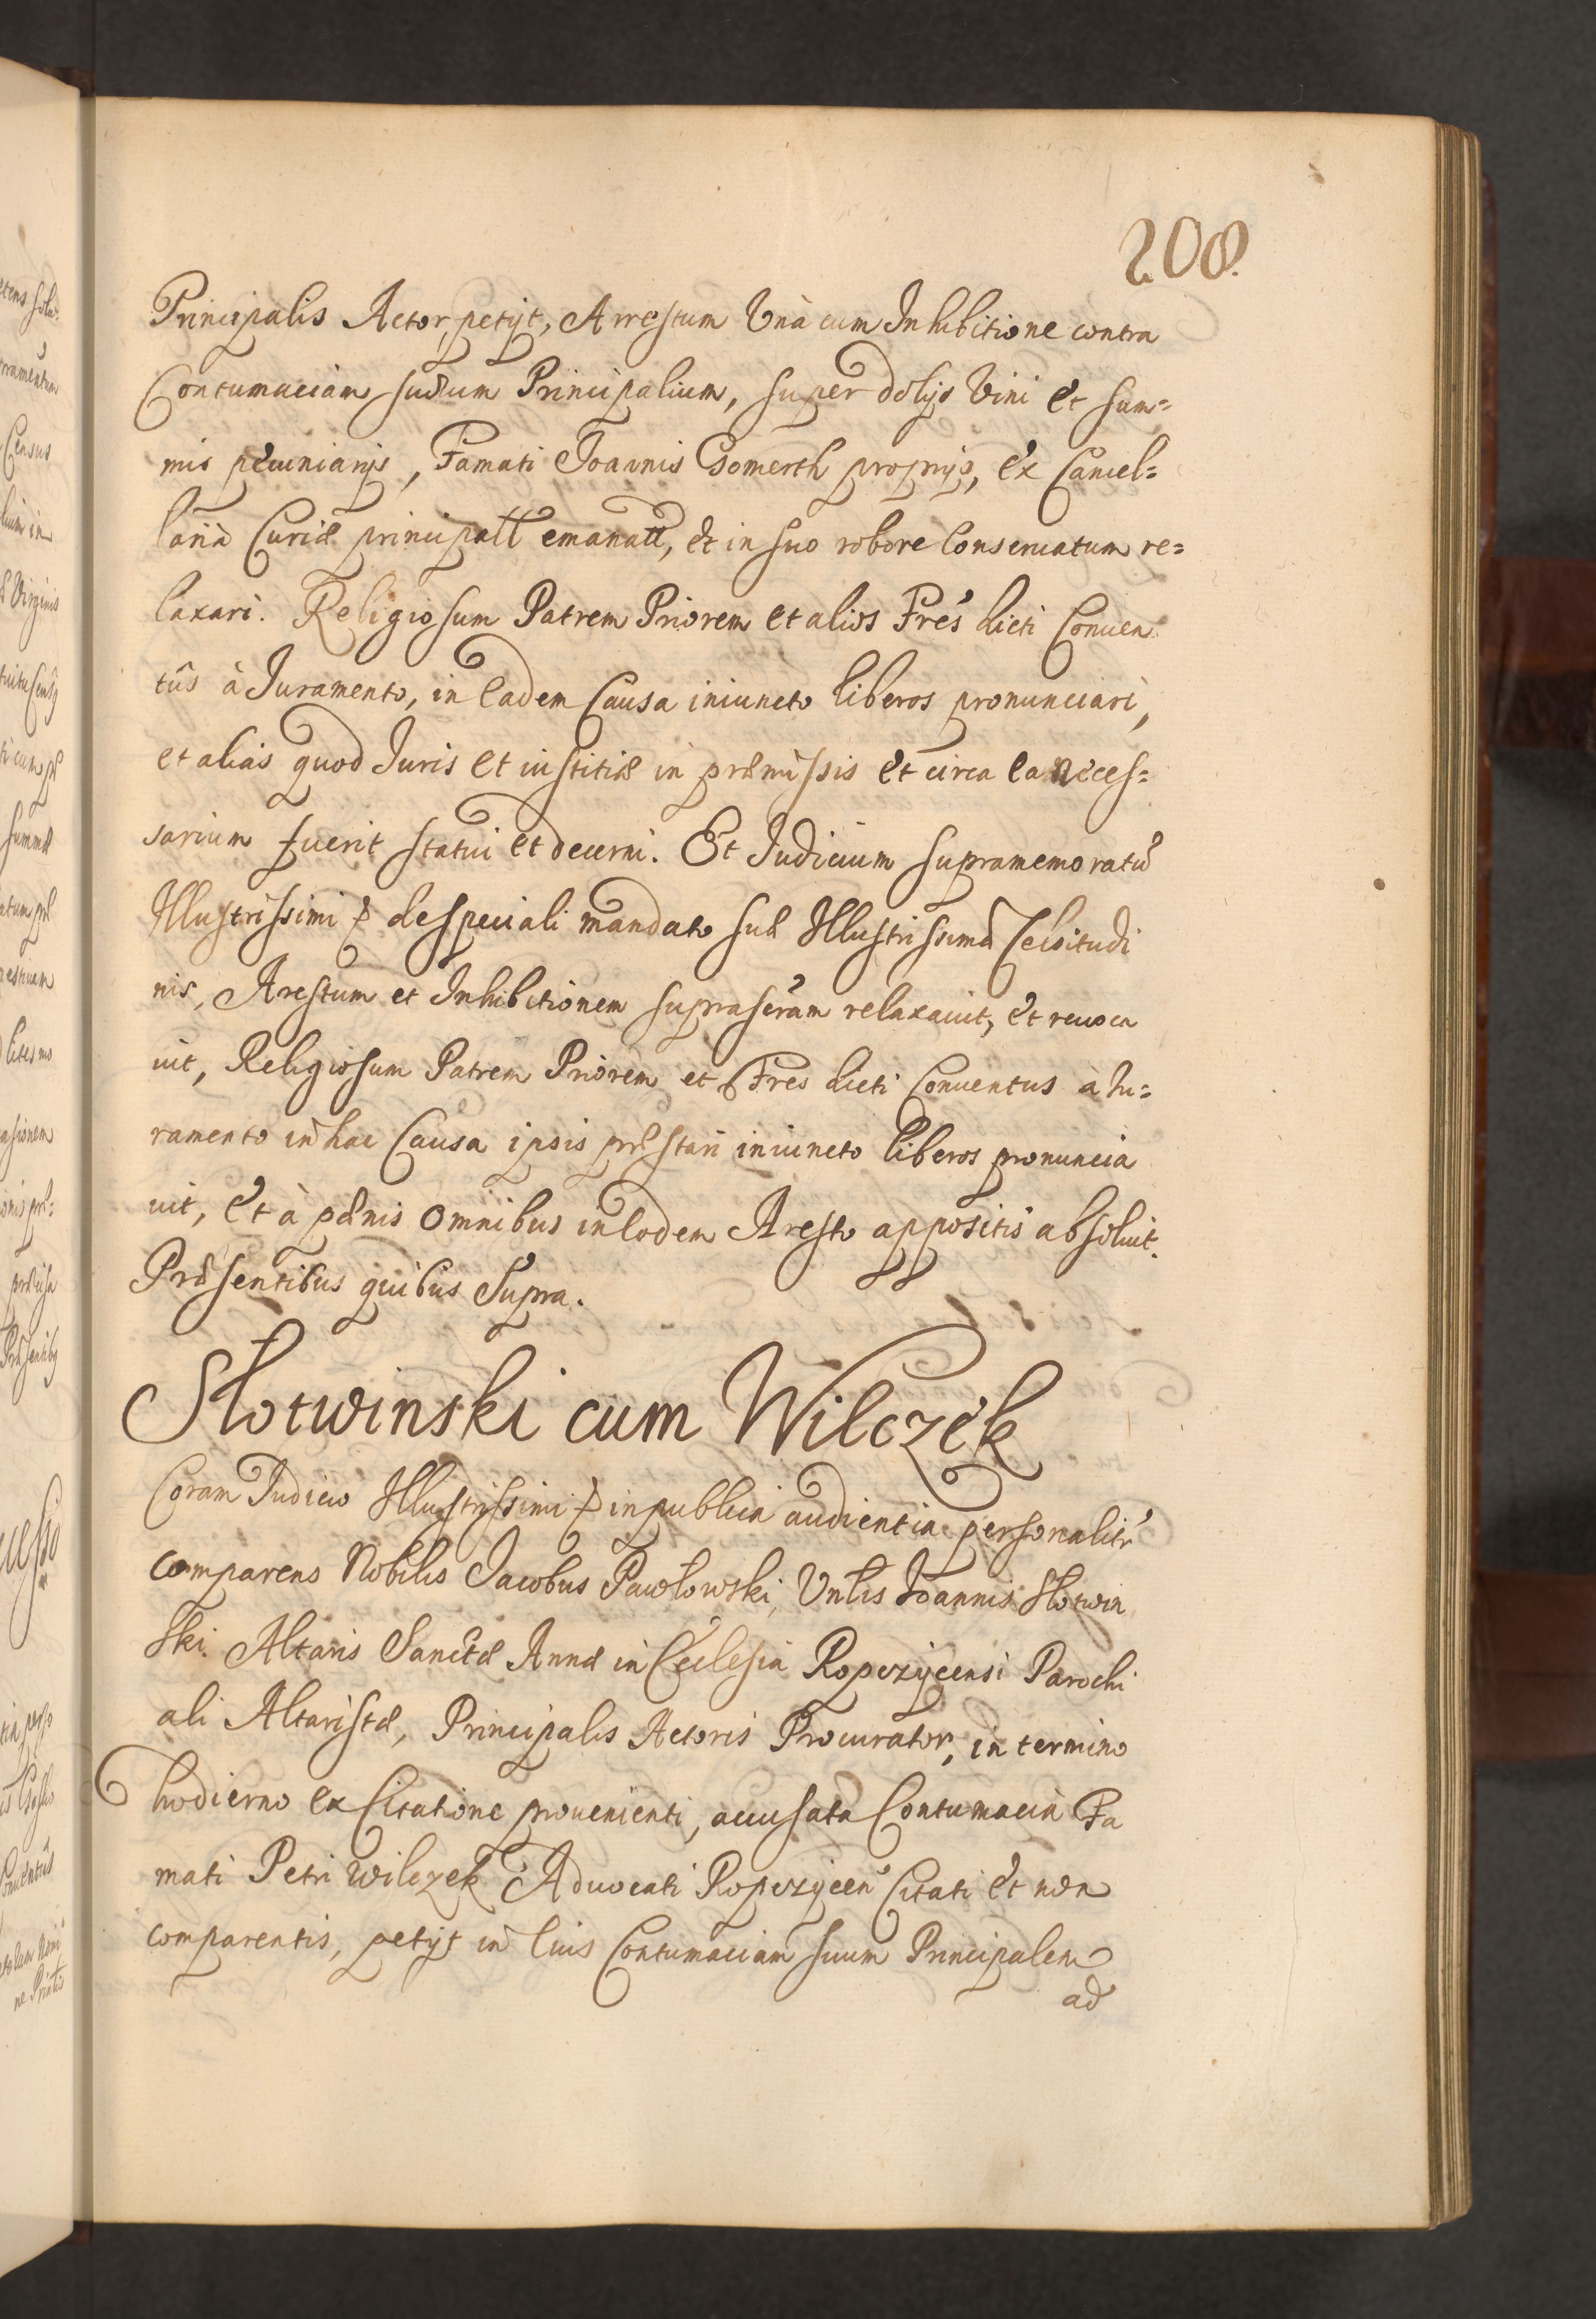 208.
Principalis Actor, petijt, Arrestum Vnà cum Inhibitione contra
Contumaciam suorum Principalium, super dolijs Vini et sum=
mis pecuniarijs, Famati Joannis Gomerth proprijs, ex Cancel=
laria Curiæ principall emanatt, et in suo robore Conseruatum re=
laxari. Religiosum Patrem Priorem et alios Fres dicti Conuen
tûs à Juramento, in eadem Causa iniuncto liberos pronunciari,
et alias quod Juris et iustitiæ in præmissis et circa ea neces=
sarium fuerit statui et decerni. Et Judicium supramemoratu
Illustrissimi de speciali mandato suæ Illustrissimæ Celsitudi
nis, Arestum et Inhibitionem suprascram relaxauit, et reuoca
uit, Religiosum Patrem Priorem et Fres dicti Conuentus à Iu=
ramento in hac Causa ipsis præstari iniuncto liberos pronuncia
uit, et à pœnis omnibus in eodem Aresto appositis absoluit.
Præsentibus quibus Supra.
Słotwinski cum Wilczek
Coram Judicio Illustrissimi in publica audientia personalitr
comparens Nobilis Jacobus Pawłowski, Vnlis Joannis Słotwin
ski. Altaris Sanctæ Annæ in Ecclesia Ropczycensi Parochi
ali Altaristæ, Principalis Actoris Procurator, in termino
hodierno ex Citatione prouenienti, accusata Contumacia Fa
mati Petri Wilczek Aduocati Ropczycen Citati et non
comparentis, petijt in eius Contumaciam suum Principalem
ad